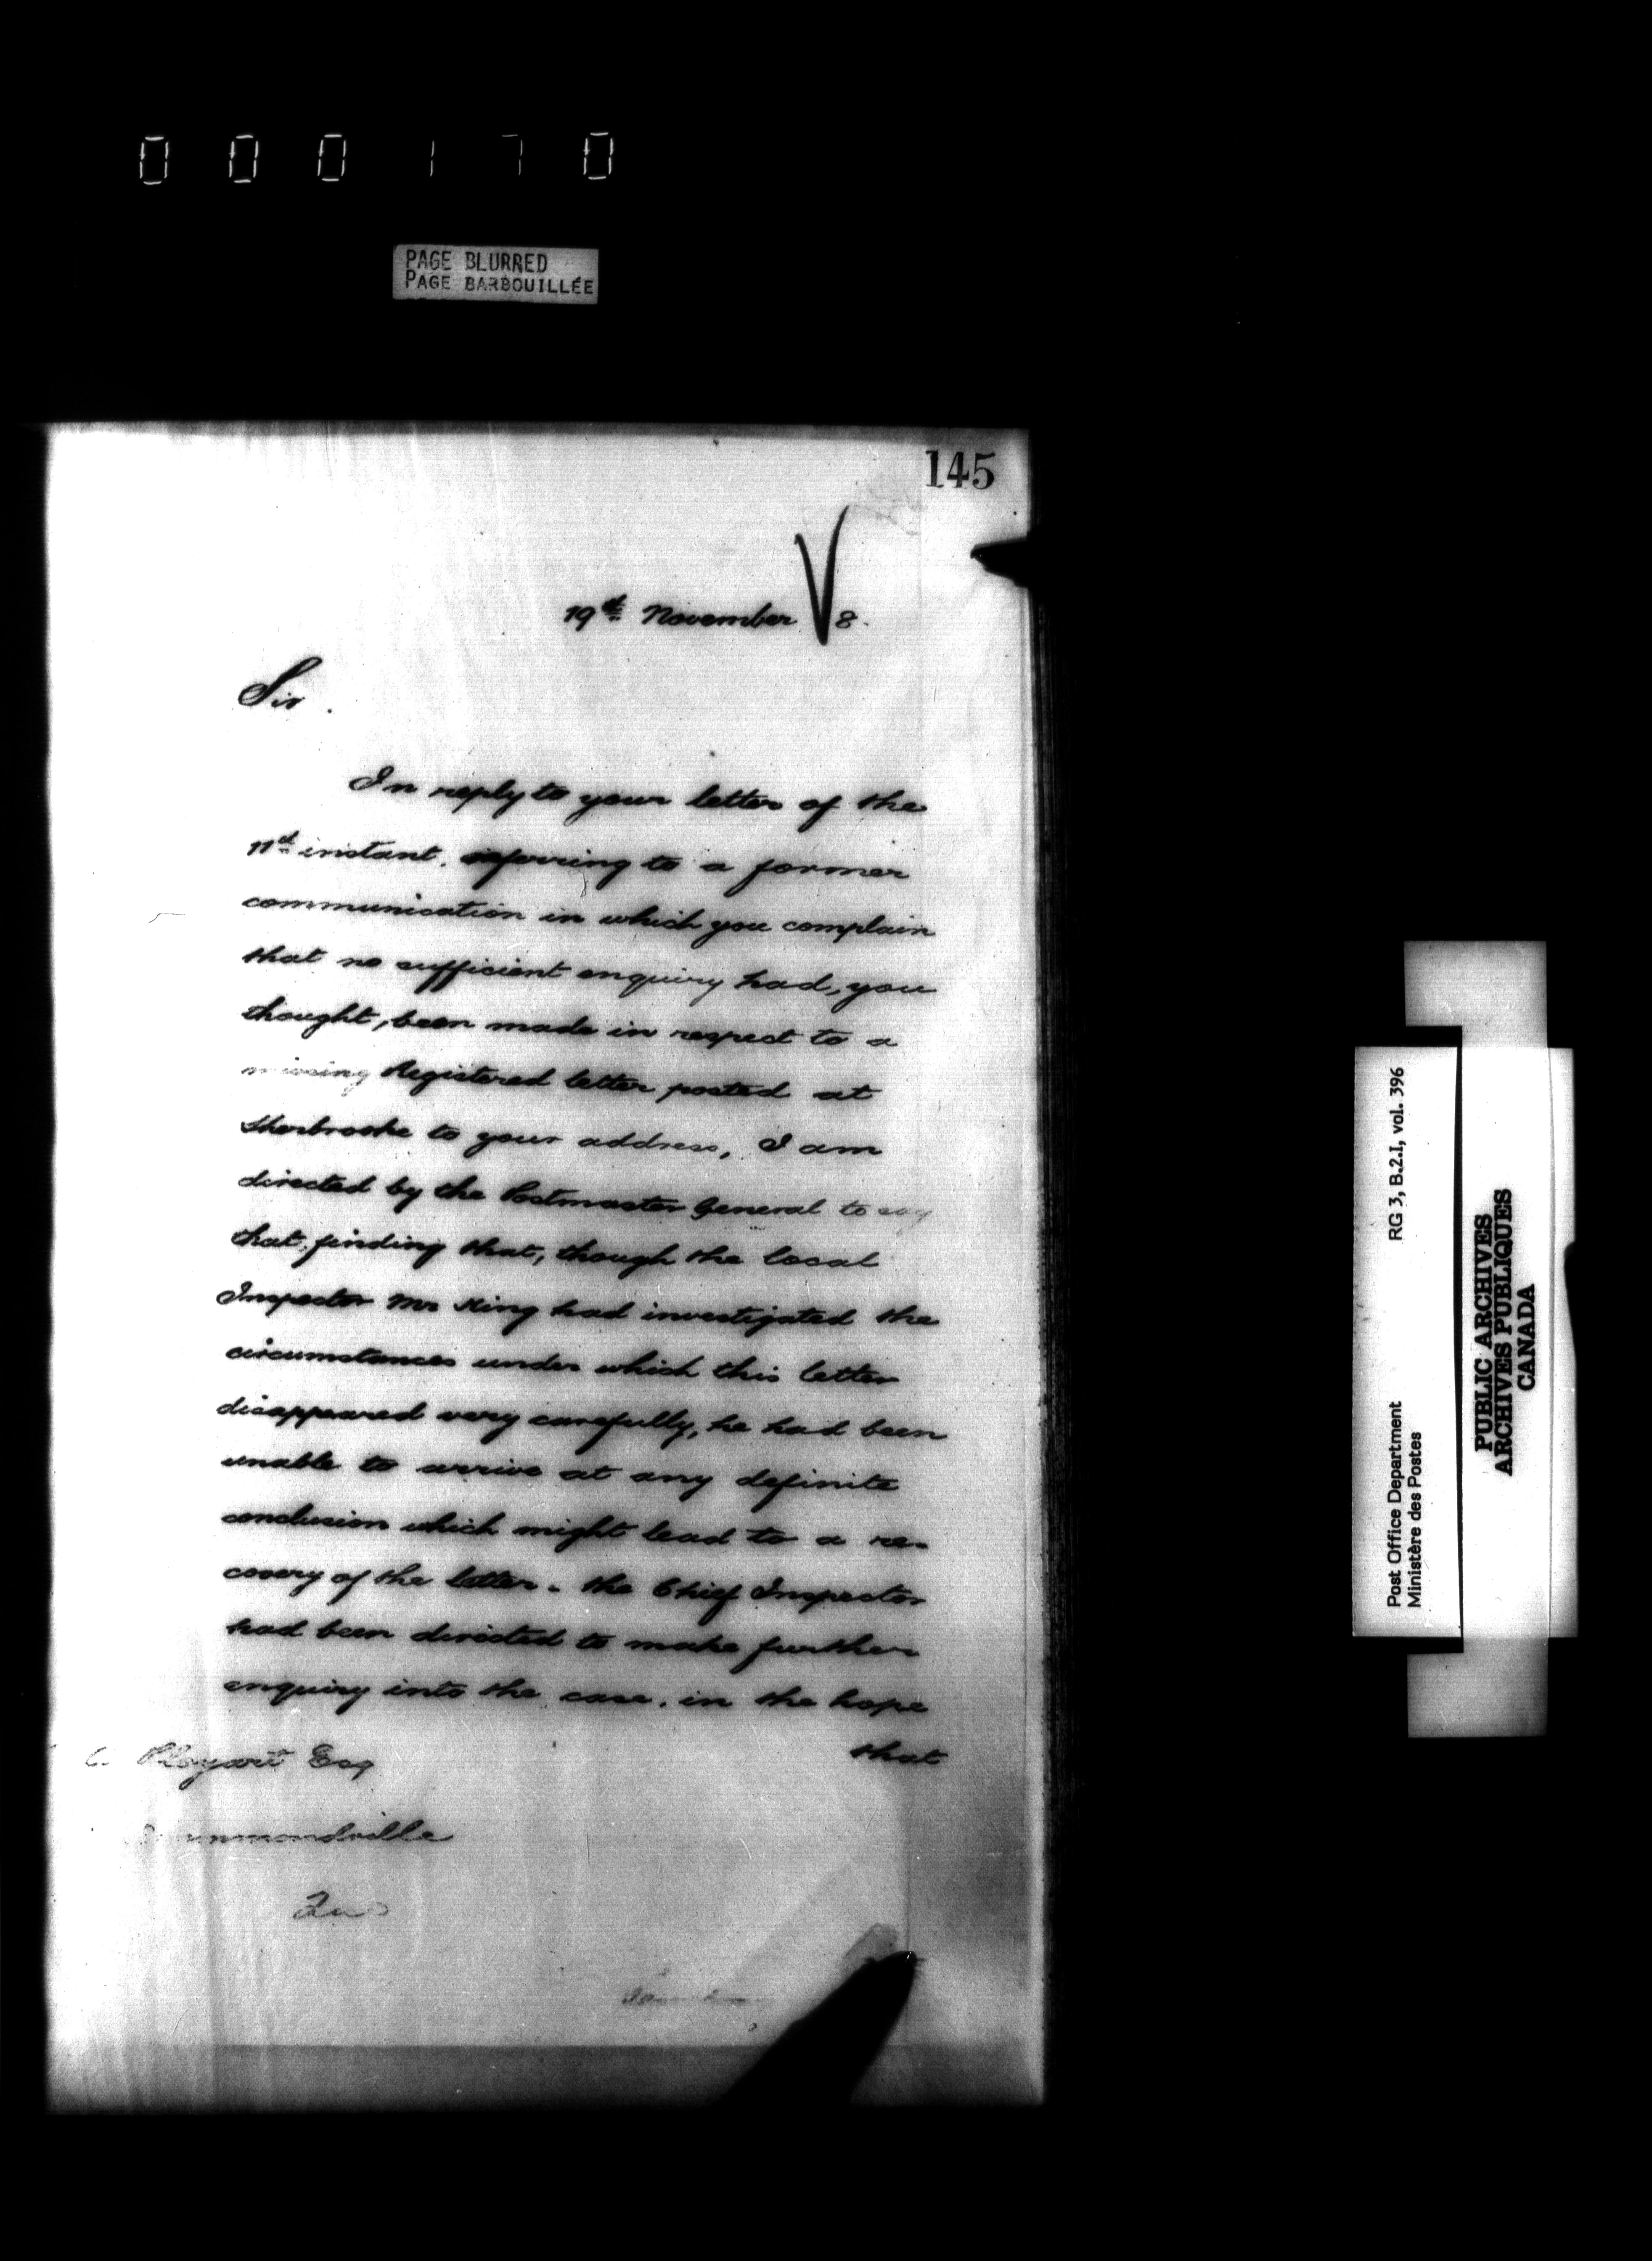 000170
PAGE BLURRED
PAGE BARBOUILLÉE
145
19th November 8.
Sir.
In reply to your letter of the
11th instant, referring to a former
communication in which you complain
that no sufficient enquiry had, you
thought, been made in respect to a
missing Registered letter posted at
Sherbrooke to your address, I am
directed by the Postmaster General to say
that, finding that, though the local
Inspector Mr King had investigated the
circumstances under which this letter
disappeared very carefully, he had been
unable to arrive at any definite
conclusion which might lead to a re-
covery of the letter - the Chief Inspector
had been directed to make further
enquiry into the case, in the hope
that
C. Esq
Drummondville
Post Office Department
Ministère des Postes
RG 3, B.2.I, vol. 396
PUBLIC ARCHIVES
ARCHIVES PUBLIQUES
CANADA